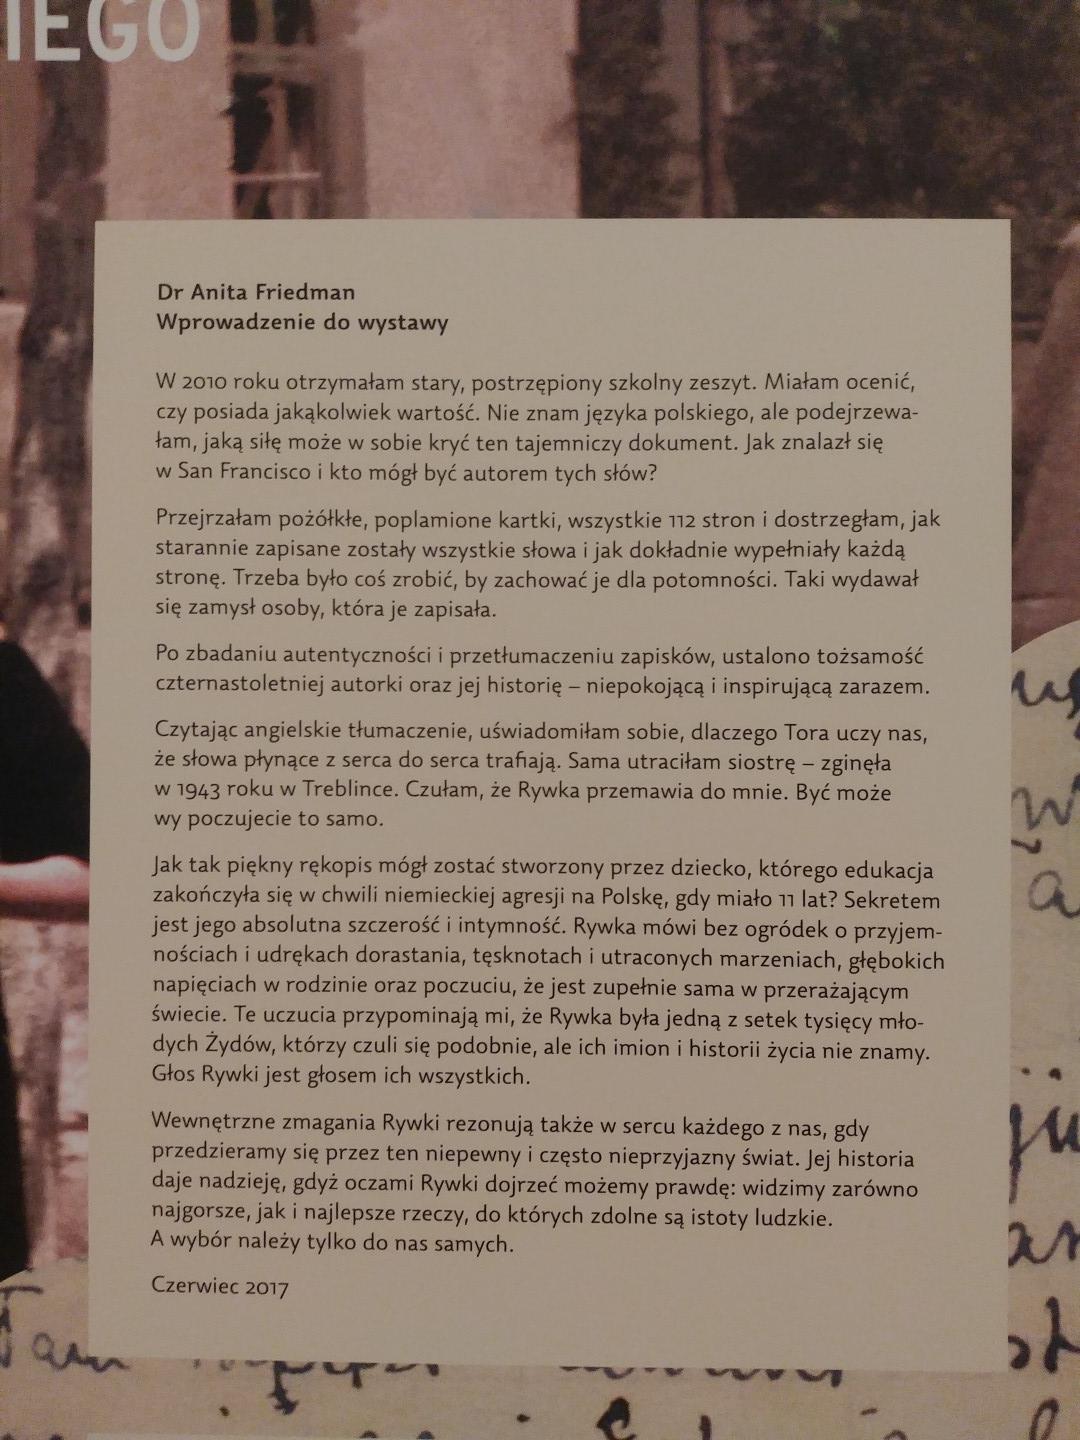 IEGO
Dr Anita Friedman
Wprowadzenie do wystawy
W 2010 roku otrzymałam stary, postrzępiony szkolny zeszyt. Miałam ocenić,
czy posiada jakąkolwiek wartość. Nie znam języka polskiego, ale podejrzewa-
łam, jaką siłę może w sobie kryć ten tajemniczy dokument. Jak znalazł się
w San Francisco i kto mógł być autorem tych słów?
Przejrzałam pożółkłe, poplamione kartki, wszystkie 112 stron i dostrzegłam, jak
starannie zapisane zostały wszystkie słowa i jak dokładnie wypełniały każdą
stronę. Trzeba było coś zrobić, by zachować je dla potomności. Taki wydawał
się zamysł osoby, która je zapisała.
Po zbadaniu autentyczności i przetłumaczeniu zapisków, ustalono tożsamość
czternastoletniej autorki oraz jej historię – niepokojącą i inspirującą zarazem.
Czytając angielskie tłumaczenie, uświadomiłam sobie, dlaczego Tora uczy nas,
że słowa płynące z serca do serca trafiają. Sama utraciłam siostrę – zginęła
w 1943 roku w Treblince. Czułam, że Rywka przemawia do mnie. Być może
wy poczujecie to samo.
Jak tak piękny rękopis mógł zostać stworzony przez dziecko, którego edukacja
zakończyła się w chwili niemieckiej agresji na Polskę, gdy miało 11 lat? Sekretem
jest jego absolutna szczerość i intymność. Rywka mówi bez ogródek o przyjem-
nościach i udrękach dorastania, tęsknotach i utraconych marzeniach, głębokich
napięciach w rodzinie oraz poczuciu, że jest zupełnie sama w przerażającym
świecie. Te uczucia przypominają mi, że Rywka była jedną z setek tysięcy mło-
dych Żydów, którzy czuli się podobnie, ale ich imion i historii życia nie znamy.
Głos Rywki jest głosem ich wszystkich.
Wewnętrzne zmagania Rywki rezonują także w sercu każdego z nas, gdy
przedzieramy się przez ten niepewny i często nieprzyjazny świat. Jej historia
daje nadzieję, gdyż oczami Rywki dojrzeć możemy prawdę: widzimy zarówno
najgorsze, jak i najlepsze rzeczy, do których zdolne są istoty ludzkie.
A wybór należy tylko do nas samych.
Czerwiec 2017